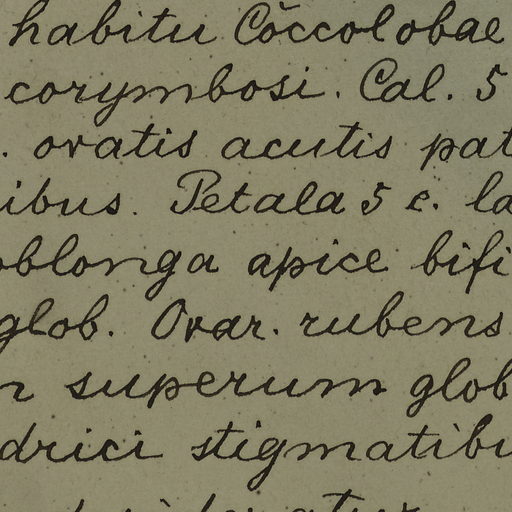 habitu Cŏccolobae
corymbosi. Cal. 5
. ovatis acutis pat
ibus. Petala 5 c. la
oblonga apice bifi
glob. Ovar. rubens
superum glob
drici stigmatibu